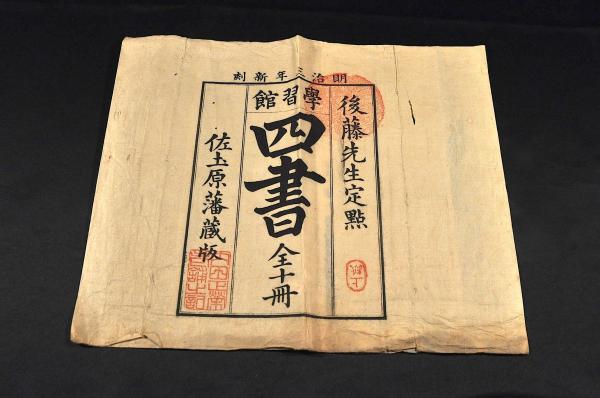 明治三年新刻
後藤先生定點
學習館
四書全十冊
佐土原藩藏版